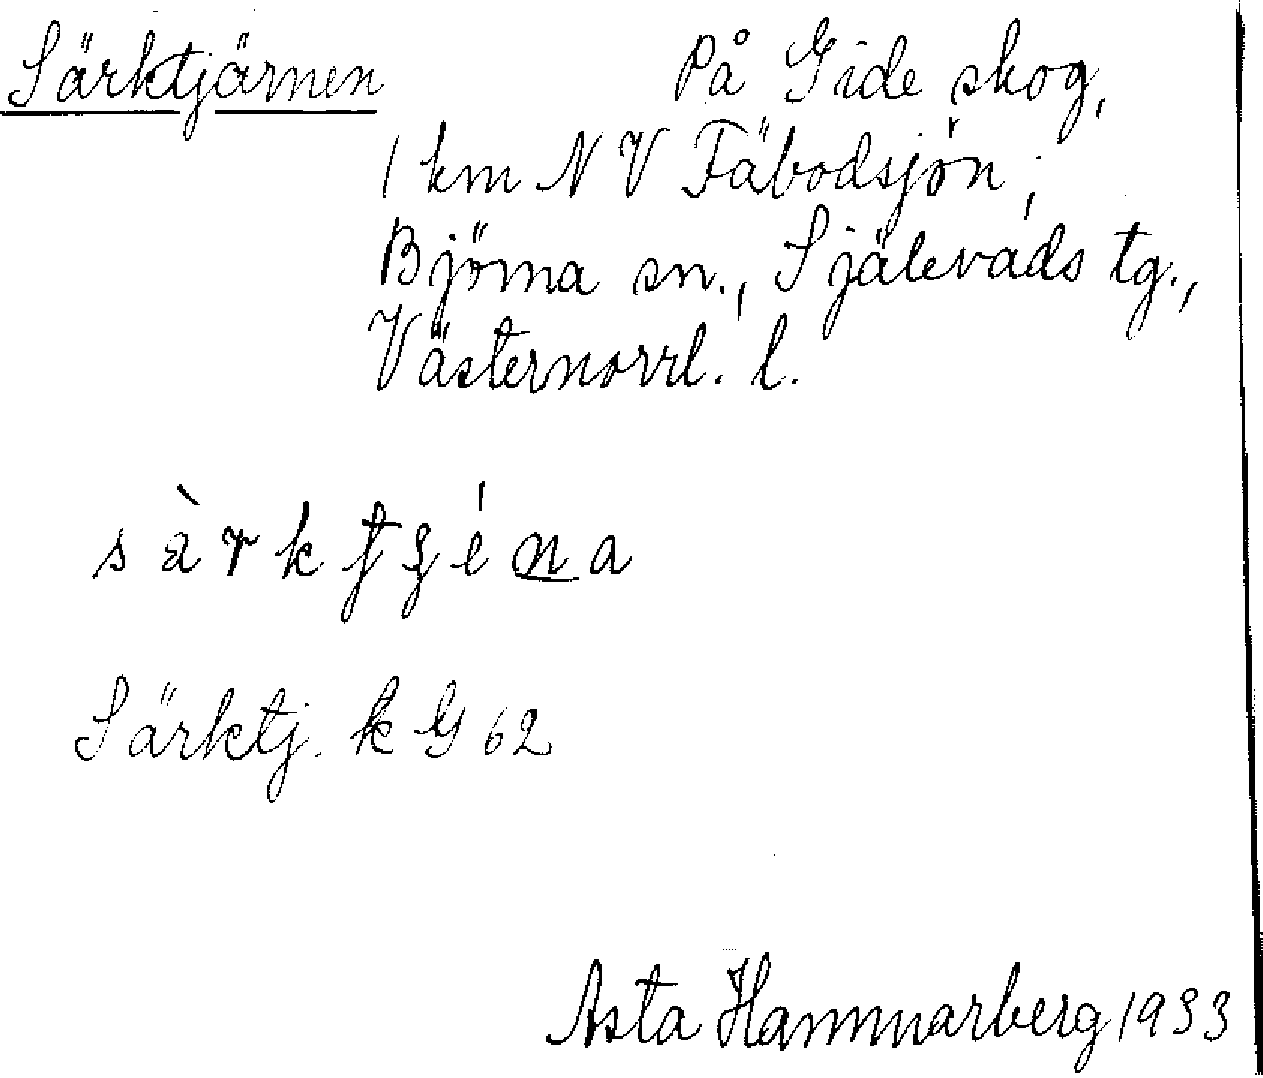 Särktjärnen På Gide skog,
1 km N V Fäbodsjön,
Björna sn., Själevads tg.,
Västernorrl. l.
Särktj. k G 62
Asta Hammarberg 1933